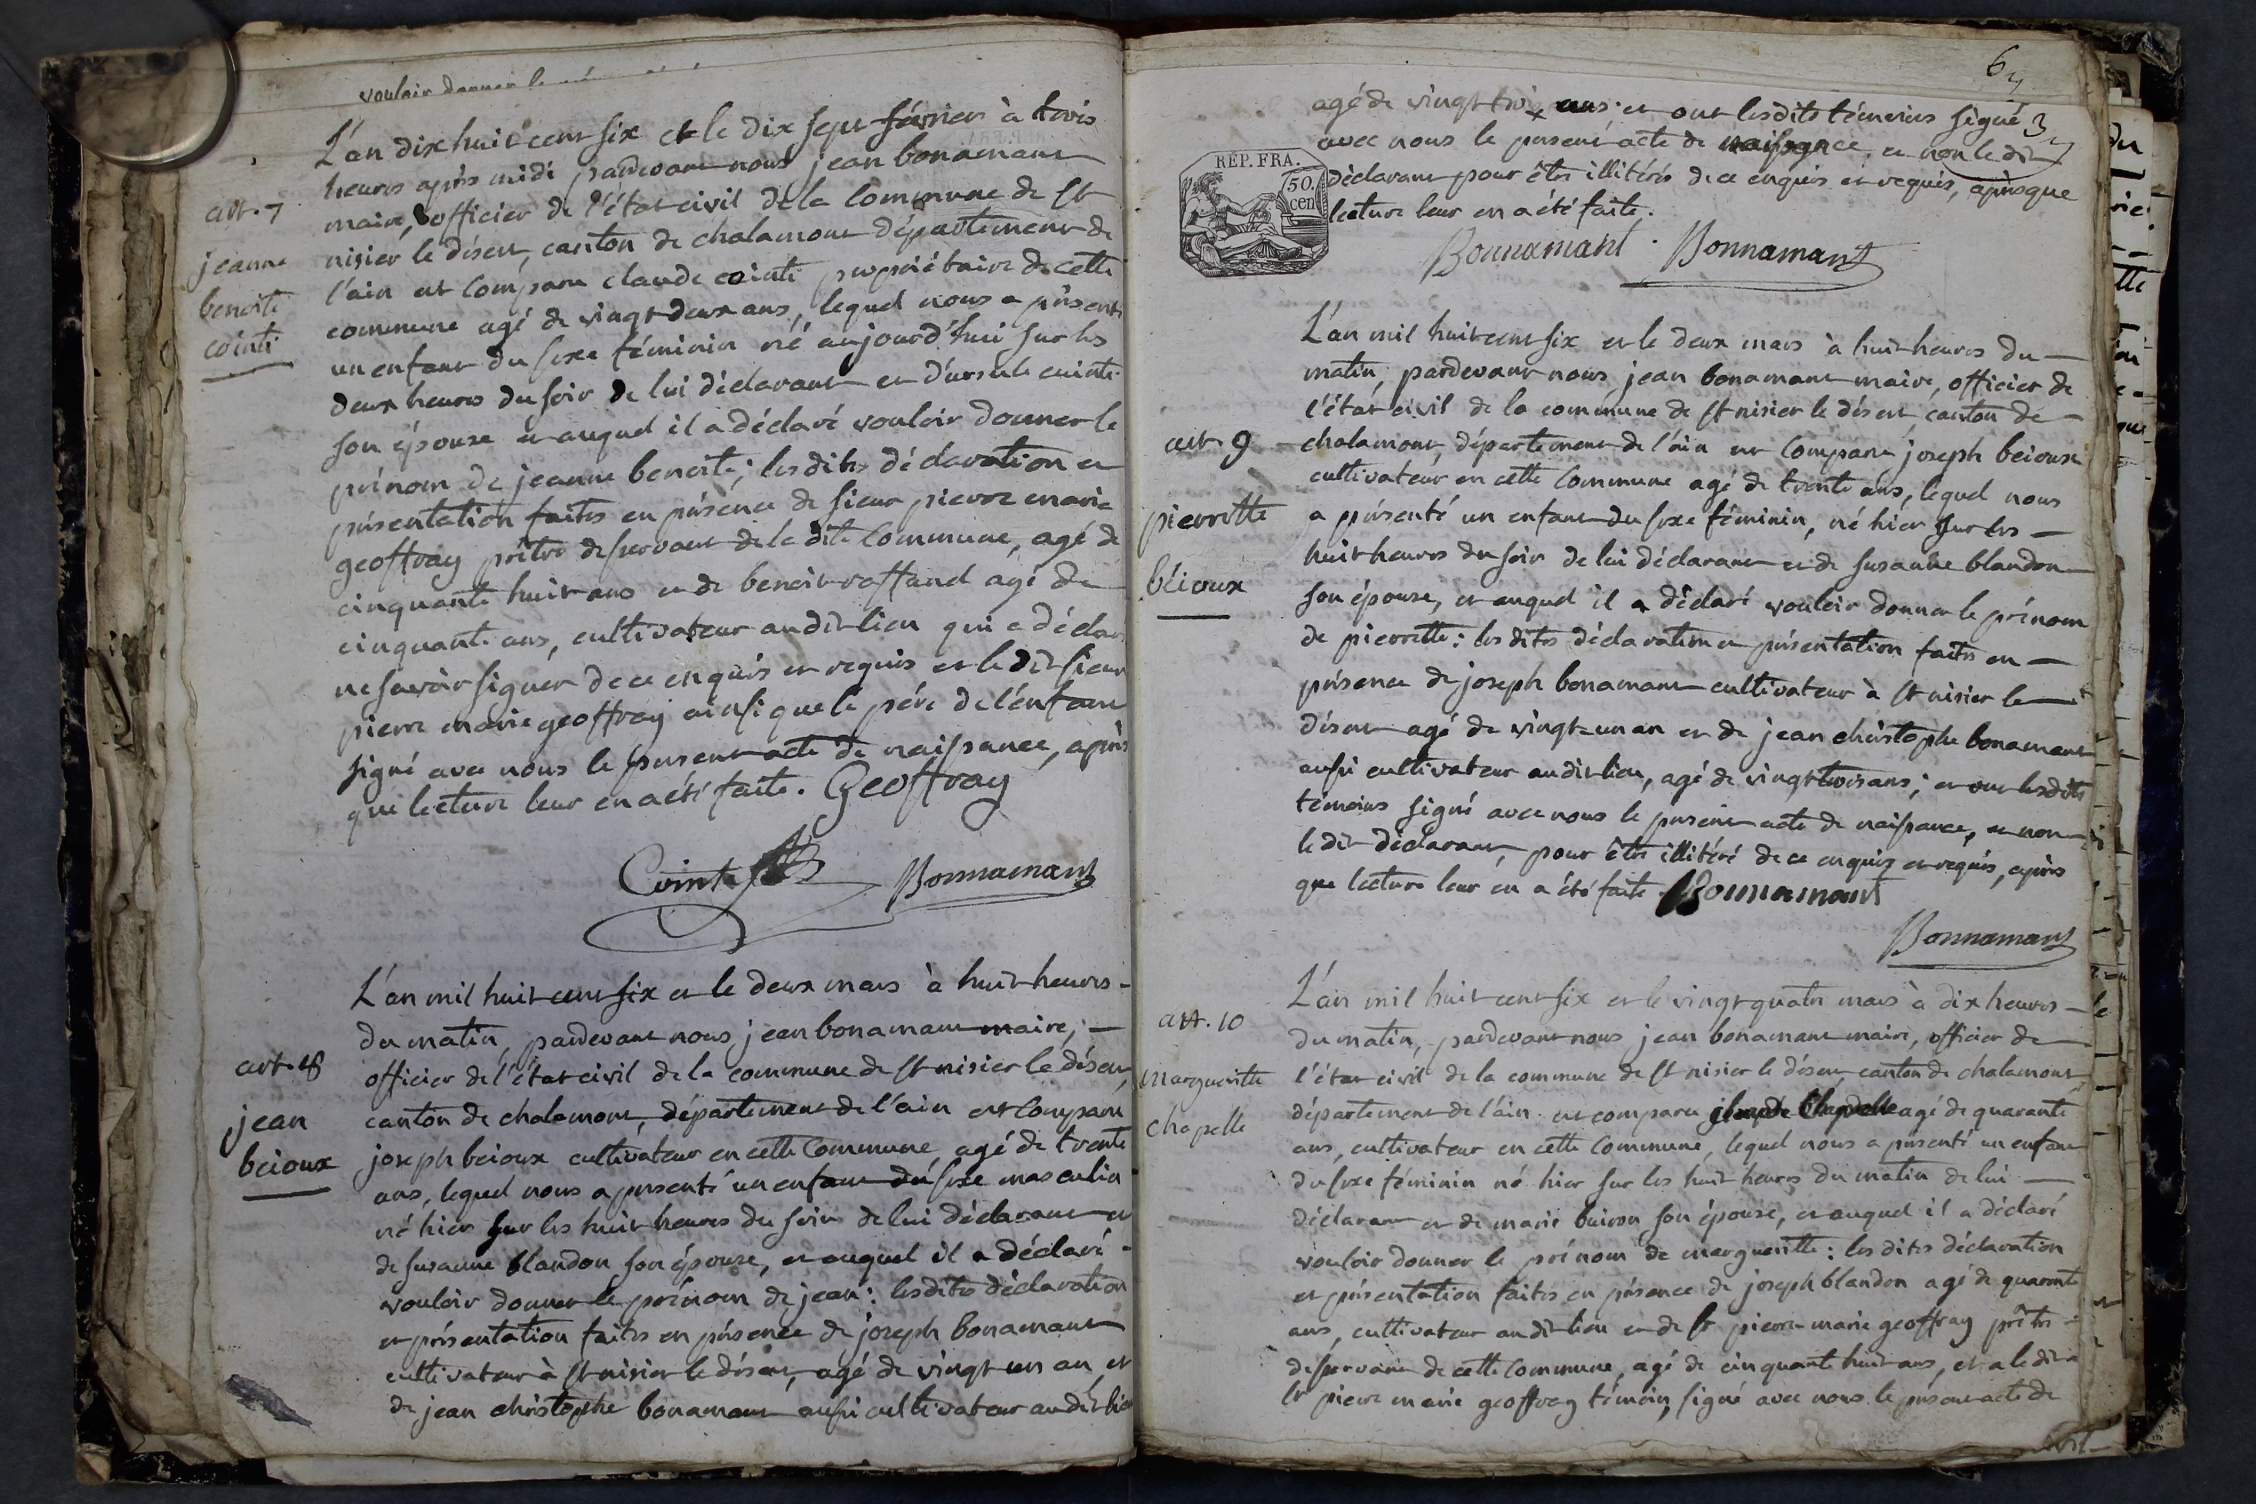 vouloir donner le
L'an dix huit cent six et le dix sept février à trois
heures après midi pardevant nous jean bonamant
maire, officier de l'état civil de la Commune de St
nisier le désert, canton de chalamont département de
l'ain est Comparu claude cointe propriétaire de cette
commune agé de vingt deux ans, lequel nous a présenté
un enfant du sexe féminin né aujourd'hui sur les
deux heures du soir de lui déclarant et d'ursule cuinte
son épouse et auquel il a déclaré vouloir donner le
prénom de jeanne benoite; les dites déclaration et
présentation faites en présence de sieur pierre marie
geoffray prêtre desservant de la dite Commune, agé de
cinquante huit ans et de benoit raffand agé de
cinquante ans, cultivateur audit lieu qui a déclaré
ne savoir signer de ce enquis et requis et le dit sieur
pierre marie geoffray ainsi que le père de l'enfant
signé avec nous le présent acte de naissance, après
que lecture leur en a été faite. Geoffray
Cointe Bonnamant
art. 7
jeanne
benoite
cointe
L'an mil huit cent six et le deux mars à huit heures -
du matin, pardevant nous jean bonamant maire, -
officier de l'état civil de la commune de St nisier le désert,
canton de chalamont, département de l'ain est Comparu
joseph beioux cultivateur en cette Commune agé de trente
ans, lequel nous a présenté un enfant du sexe masculin
né hier sur les huit heures du soir de lui déclarant et
de susanne blandon son épouse, et auquel il a déclaré -
vouloir donner le prénom de jean: lesdites déclaration
et présentation faites en présence de joseph bonamant
cultivateur à St nisier le désert, agé de vingt un an, et
de jean christophe bonamant aussi cultivateur audit lieu
art. 8
jean
beioux
6
3
agé de vingt trois ans; et ont lesdits témoins signé
avec nous le présent acte de naissance, et non le dit
déclarant pour être illitéré de ce enquis et requis, après que
lecture leur en a été faite.
REP. FRA.
50.
cen
Bonnamant. Bonnamant
L'an mil huit cent six et le deux mars à huit heures du -
matin, pardevant nous jean bonamant maire, officier de
l'état civil de la commune de St nisier le désert, canton de -
chalamont, département de l'ain est Comparu joseph beioux
cultivateur en cette Commune agé de trente ans, lequel nous
a présenté un enfant du sexe féminin, né hier sur les -
huit heures du soir de lui déclarant et de susanne blandon
son épouse, et auquel il a déclaré vouloir donner le prénom
de pierrette: les dites déclaration et présentation faites en -
présence de joseph bonamant cultivateur à St nisier le -
désert agé de vingt un an et de jean christophe bonamant
aussi cultivateur audit lieu, agé de vingt trois ans; et ont lesdits
témoins signé avec nous le présent acte de naissance, et non -
le dit déclarant, pour être illitéré de ce enquis et requis, après
que lecture leur en a été faite. Bonnamant
Bonnamant
art. 9
pierrette
béioux
L'an mil huit cent six et le vingt quatre mars à dix heures -
du matin, pardevant nous jean bonamant maire, officier de
l'état civil de la commune de St nisier le désert, canton de chalamont
département de l'ain est comparu Chapelle agé de quarante
ans, cultivateur en cette Commune, lequel nous a présenté un enfant
du sexe féminin né hier sur les huit heures du matin de lui -
déclarant et de marie buiron son épouse, et auquel il a déclaré
vouloir donner le prénom de marguerite: les dites déclaration
et présentation faites en présence de joseph blandon agé de quarante
ans, cultivateur audit lieu et de Sr pierre marie geoffray prêtre -
desservant de cette Commune, agé de cinquante huit ans, et a le dit
Sr pierre marie geoffray témoin, signé avec nous le présent acte de
art. 10
marguerite
chapelle